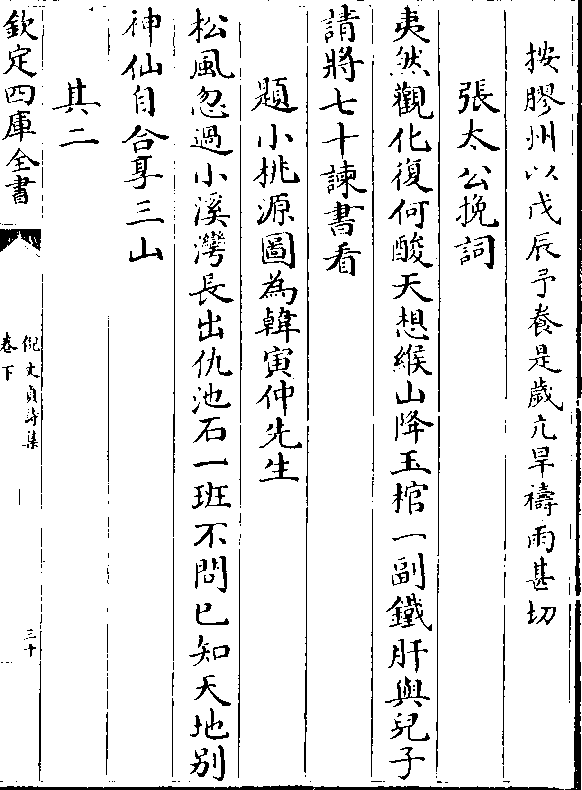 按膠州以戊辰予養是歲亢旱禱雨甚切
張太公挽詞
夷然觀化復何酸天想緱山降玉棺一副鐵肝與兒子
請將七十諫書看
題小桃源圖為韓寅仲先生
松風忽過小溪灣長出仇池石一班不問已知天地别
神仙自合享三山
其二
欽定四庫全書
倪文貞詩集
卷下
三十